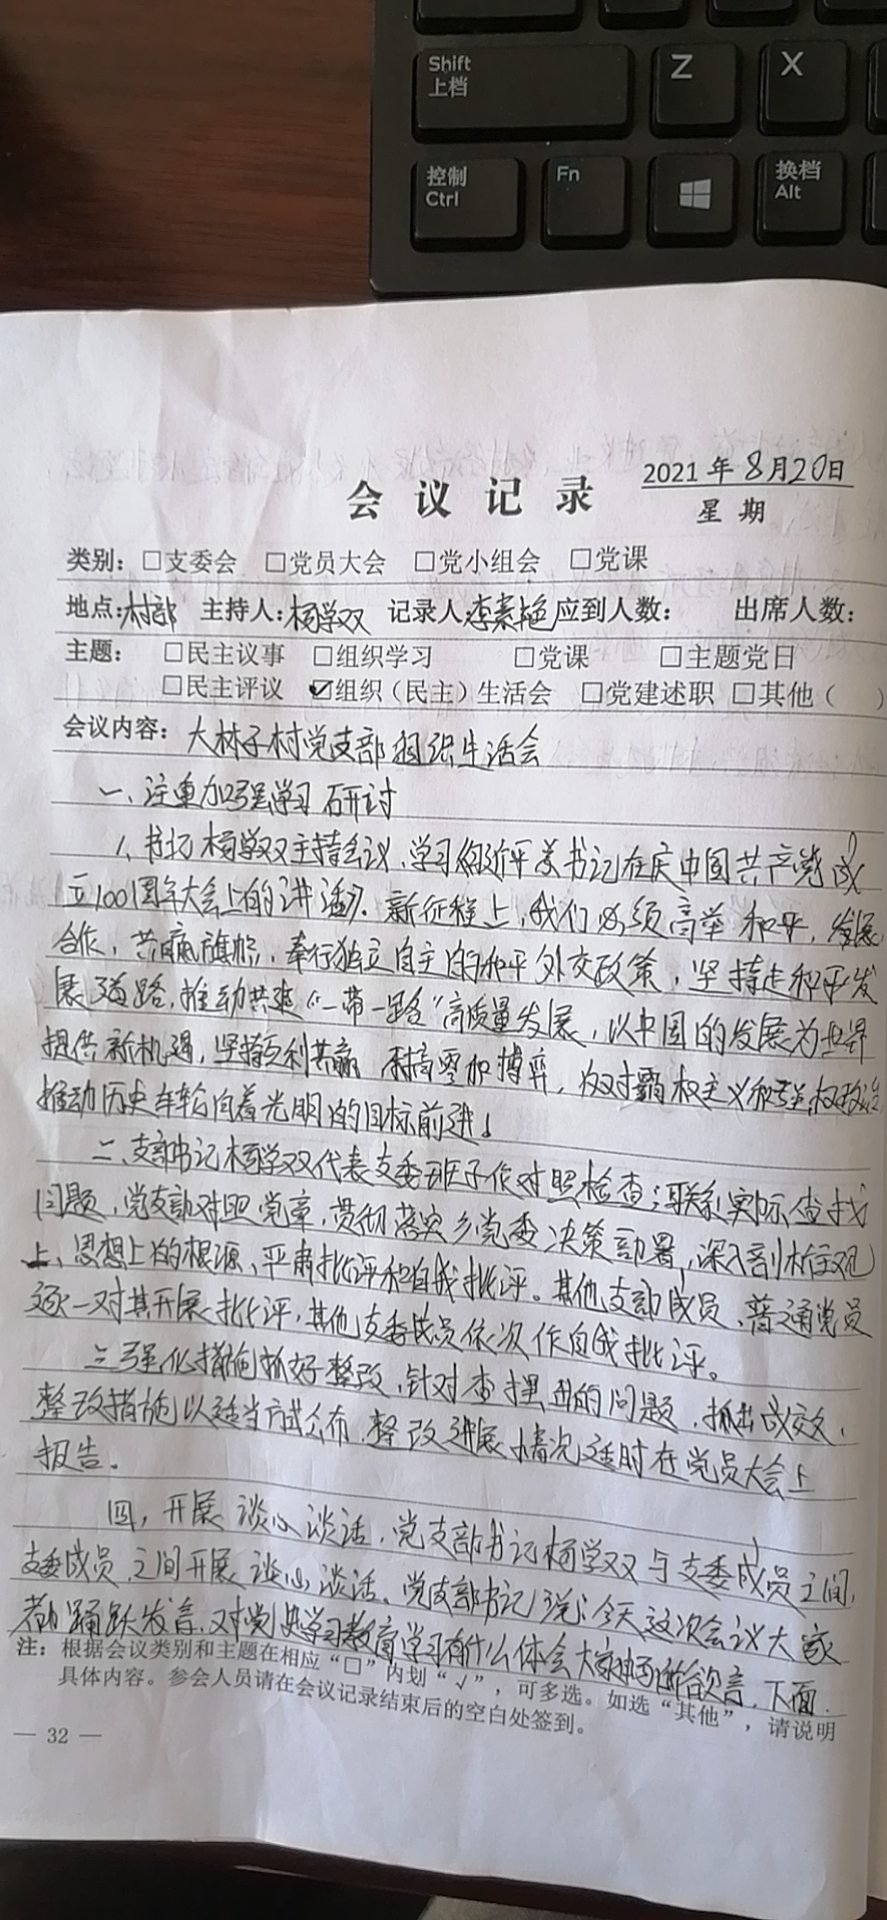 Shift
上档
Z
X
控制
Ctrl
Fn
换档
Alt
2021年8月20日
会议记录
星期
类别：□支委会 □党员大会 □党小组会 □党课
地点：村部 主持人：杨学双 记录人：李素艳 应到人数： 出席人数：
主题： □民主议事 □组织学习 □党课 □主题党日
□民主评议 ☑组织（民主）生活会 □党建述职 □其他（ ）
会议内容：大林子村党支部组织生活会
一、注重加强学习研讨
1、书记杨学双主持会议，学习《习近平总书记在庆中国共产党成
立100周年大会上的讲话》。新征程上，我们必须高举和平，发展
合作，共赢旗帜，奉行独立自主的和平外交政策，坚持走和平发
展道路，推动共建“一带一路”高质量发展，以中国的发展为世界
提供新机遇，坚持互利共赢 不搞零和博弈，反对霸权主义和强权政治
推动历史车轮向着光明的目标前进！
二、支部书记杨学双代表支委班子作对照检查；联系实际查找
问题，党支部对照党章，贯彻落实乡党委决策部署，深入剖析主观
上、思想上的根源、严肃批评和自我批评。其他支部成员、普通党员
逐一对其开展批评，其他支委成员依次作自我批评。
三强化措施抓好整改，针对查摆出的问题，抓出成效，
整改措施以适当方式公布，整改进展情况适时在党员大会上
报告。
四，开展谈心谈话，党支部书记杨学双与支委成员之间，
支委成员之间开展谈心谈话。党支部书记说：今天这次会议大家
都踊跃发言，对党史学习教育学习有什么体会大家畅所欲言，下面，
注：根据会议类别和主题在相应“□”内划“√”，可多选。如选“其他”，请说明
具体内容。参会人员请在会议记录结束后的空白处签到。
— 32 —